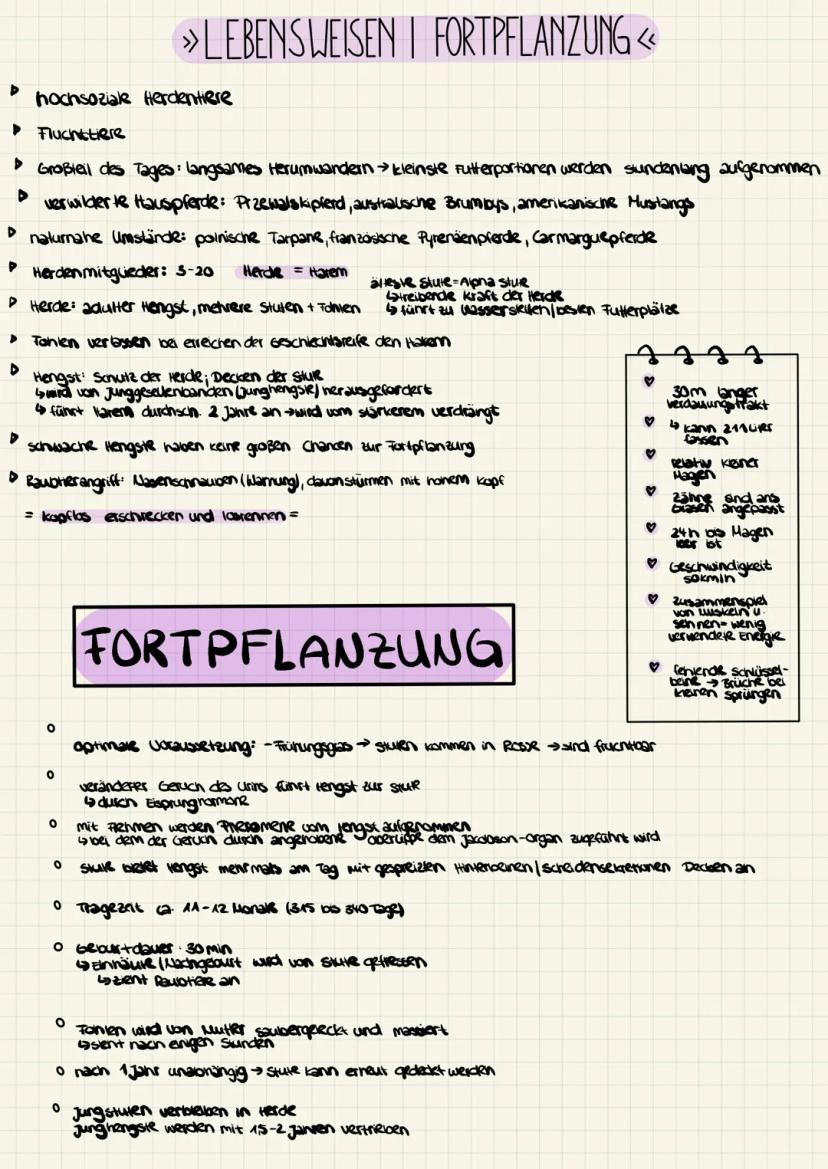 » LEBENSWEISEN | FORTPFLANZUNG «
hochsoziale Herdentiere
Fluchttiere
Großteil des Tages: langsames Herumwandern → kleinste Futterportionen werden stundenlang aufgenommen
verwilderte Hauspferde: Przewalskipferd, australische Brumbys, amerikanische Mustangs
naturnahe Umstände: polnische Tarpane, französische Pyrenäenpferde, Carmarguepferde
Herdenmitglieder: 3-20 Herde = Harem
älteste Stute = Alpha Stute
↳ treibende Kraft der Herde
↳ führt zu Wasserstellen/besten Futterplätze
Herde: adulter Hengst, mehrere Stuten + Fohlen
Fohlen verlassen bei erreichen der Geschlechtsreife den Harem
Hengst: Schutz der Herde; Decken der Stute
↳ wird von Junggesellenbanden (Junghengste) herausgefordert
↳ führt Harem durchsch. 2 Jahre an → wird vom stärkerem verdrängt
schwache Hengste haben keine großen Chancen zur Fortpflanzung
Raubtierangriff: Nasenschnauben (Warnung), davonstürmen mit hohem Kopf
= kopflos erschrecken und losrennen =
30m langer
Verdauungstrakt
↳ kann 211 Liter
fassen
relativ kleiner
Magen
Zähne sind ans
Grasen angepasst
24h bis Magen
leer ist
Geschwindigkeit
50km/h
Zusammenspiel
von Muskeln u.
Sehnen = wenig
verwendete Energie
fehlende Schlüssel-
beine → Brüche bei
kleinen Sprüngen
FORTPFLANZUNG
optimale Voraussetzung: - Frühlingsgras → Stuten kommen in Rosse → sind fruchtbar
veränderter Geruch des Urins führt Hengst zur Stute
↳ durch Eisprunghormone
mit Flehmen werden Pheromene vom Hengst aufgenommen
↳ bei dem der Geruch durch angehobene Oberlippe dem Jacobson-Organ zugeführt wird
Stute bietet Hengst mehrmals am Tag mit gespreizten Hinterbeinen/Scheidensekretionen Decken an
Tragezeit ca. 11-12 Monate (315 bis 340 Tage)
Geburtdauer: 30 min
↳ Eihäute/Nachgeburt wird von Stute gefressen
↳ zieht Raubtiere an
Fohlen wird von Mutter saubergeleckt und massiert
↳ steht nach einigen Stunden
nach 1 Jahr unabhängig → Stute kann erneut gedeckt werden
Jungstuten verbleiben in Herde
Junghengste werden mit 1,5-2 Jahren vertrieben